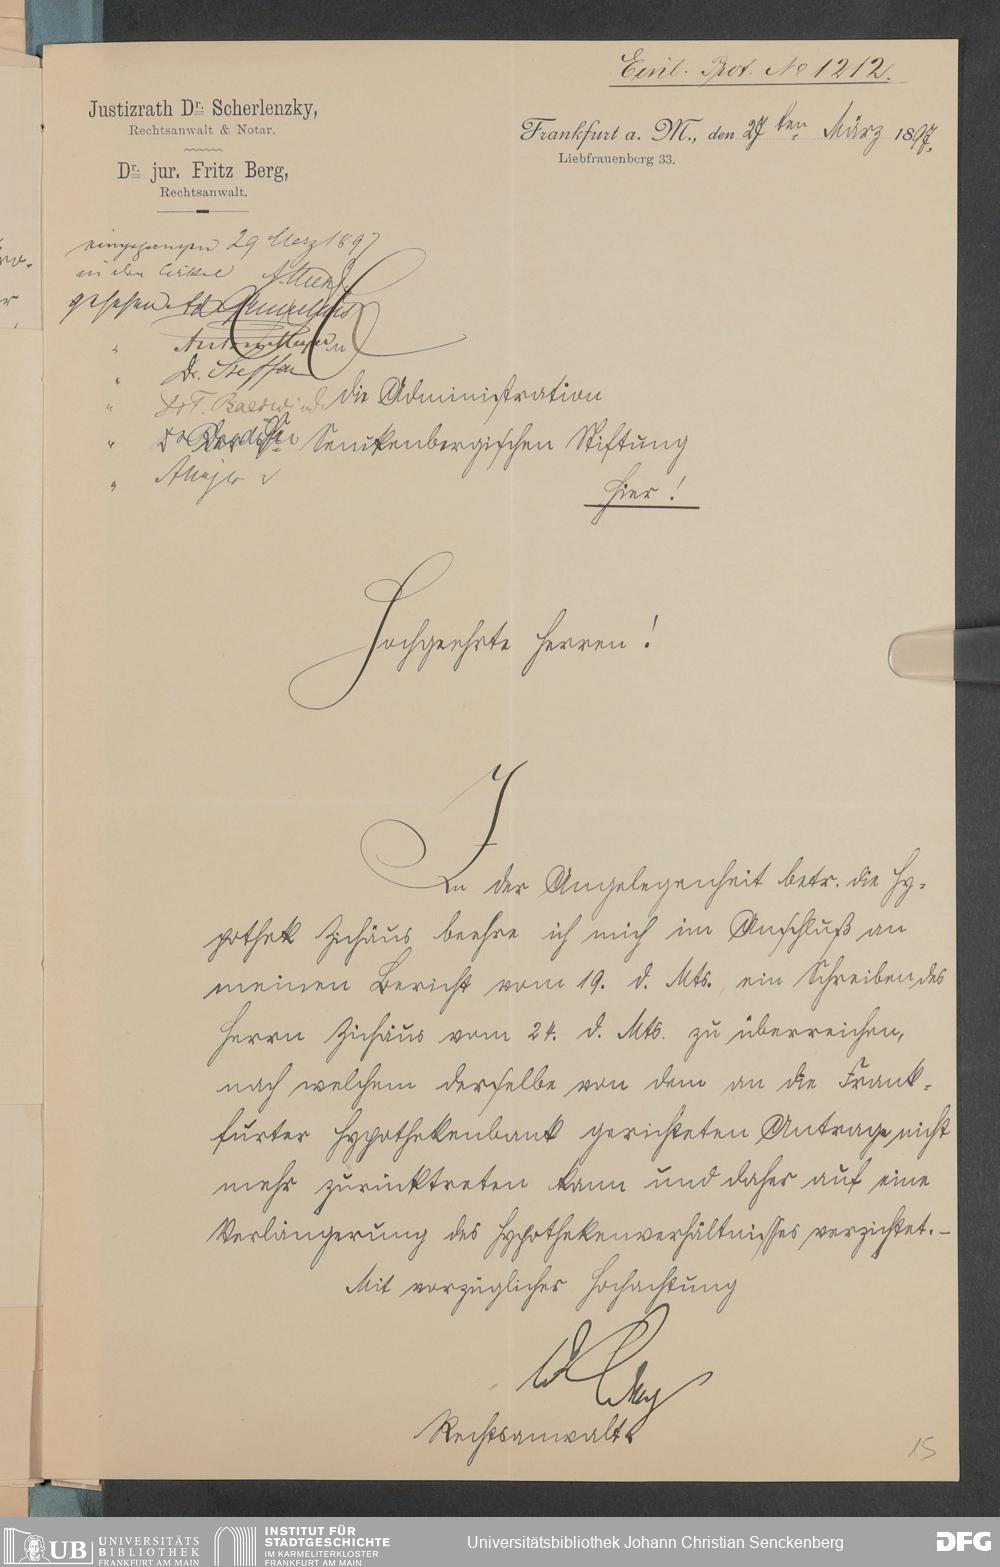 Prot. No 1212.
Justizrath Dr. Scherlenzky,
Rechtsanwalt & Notar.
Dr. jur. Fritz Berg,
Rechtsanwalt.
Frankfurt a. M., den 27ten März 1897.
Liebfrauenberg 33.
eingegangen 29 Merz 1897
in den Cirkel
gesehen
" Anton
" Dr. Steffan
"
"
"
An die Administration
Der Dr. Senckenbergischen Stiftung
Hier!
Hochgeehrte Herren!
In der Angelegenheit betr. die Hy-
pothek Zichäus beehre ich mich im Anschluß an
meinen Bericht vom 19. d. Mts., ein Schreiben des
Herrn Zichäus vom 24. d. Mts. zu überreichen,
nach welchem derselbe von dem an die Frank-
furter Hypothekenbank gerichteten Antrage nicht
mehr zurücktreten kann und daher auf eine
Verlängerung des Hypothekenverhältnisses verzichtet.-
Mit vorzüglicher Hochachtung
Dr. Berg
Rechtsanwalt
15
UB UNIVERSITÄTS
BIBLIOTHEK
FRANKFURT AM MAIN
INSTITUT FÜR
STADTGESCHICHTE
IM KARMELITERKLOSTER
FRANKFURT AM MAIN
Universitätsbibliothek Johann Christian Senckenberg
DFG